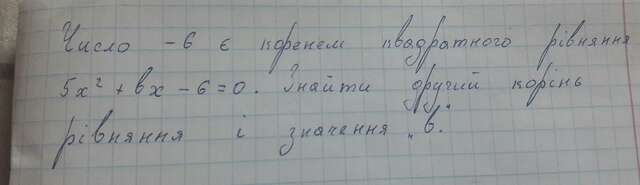 Число -6 є коренем квадратного рівняння
5x² + вx - 6 = 0. Знайти другий корінь
рівняння і значення „в".